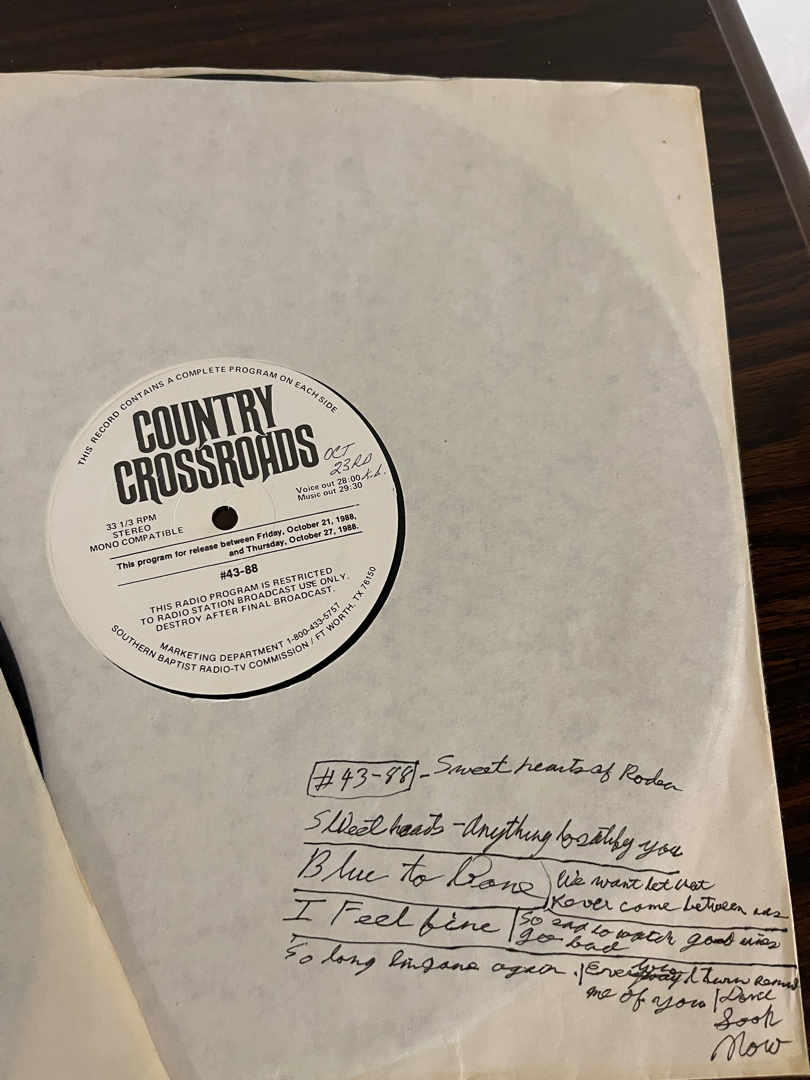 THIS RECORD CONTAINS A COMPLETE PROGRAM ON EACH SIDE
COUNTRY
CROSSROADS
OCT
23RD
Voice out 28:00
Music out 29:30
33 1/3 RPM
STEREO
MONO COMPATIBLE
This program for release between Friday, October 21, 1988,
and Thursday, October 27, 1988.
#43-88
THIS RADIO PROGRAM IS RESTRICTED
TO RADIO STATION BROADCAST USE ONLY.
DESTROY AFTER FINAL BROADCAST.
MARKETING DEPARTMENT 1-800-433-5757
SOUTHERN BAPTIST RADIO-TV COMMISSION / FT WORTH, TX 76150
#43-88 - Sweet hearts of Rodeo
Sweet hearts - Anything to satify you
Blue to Bone
We want let that
River come between us
I Feel fine
So sad to watch good
go bad
So long gone again
Every turn remind
me of you
Dont
Look
Now